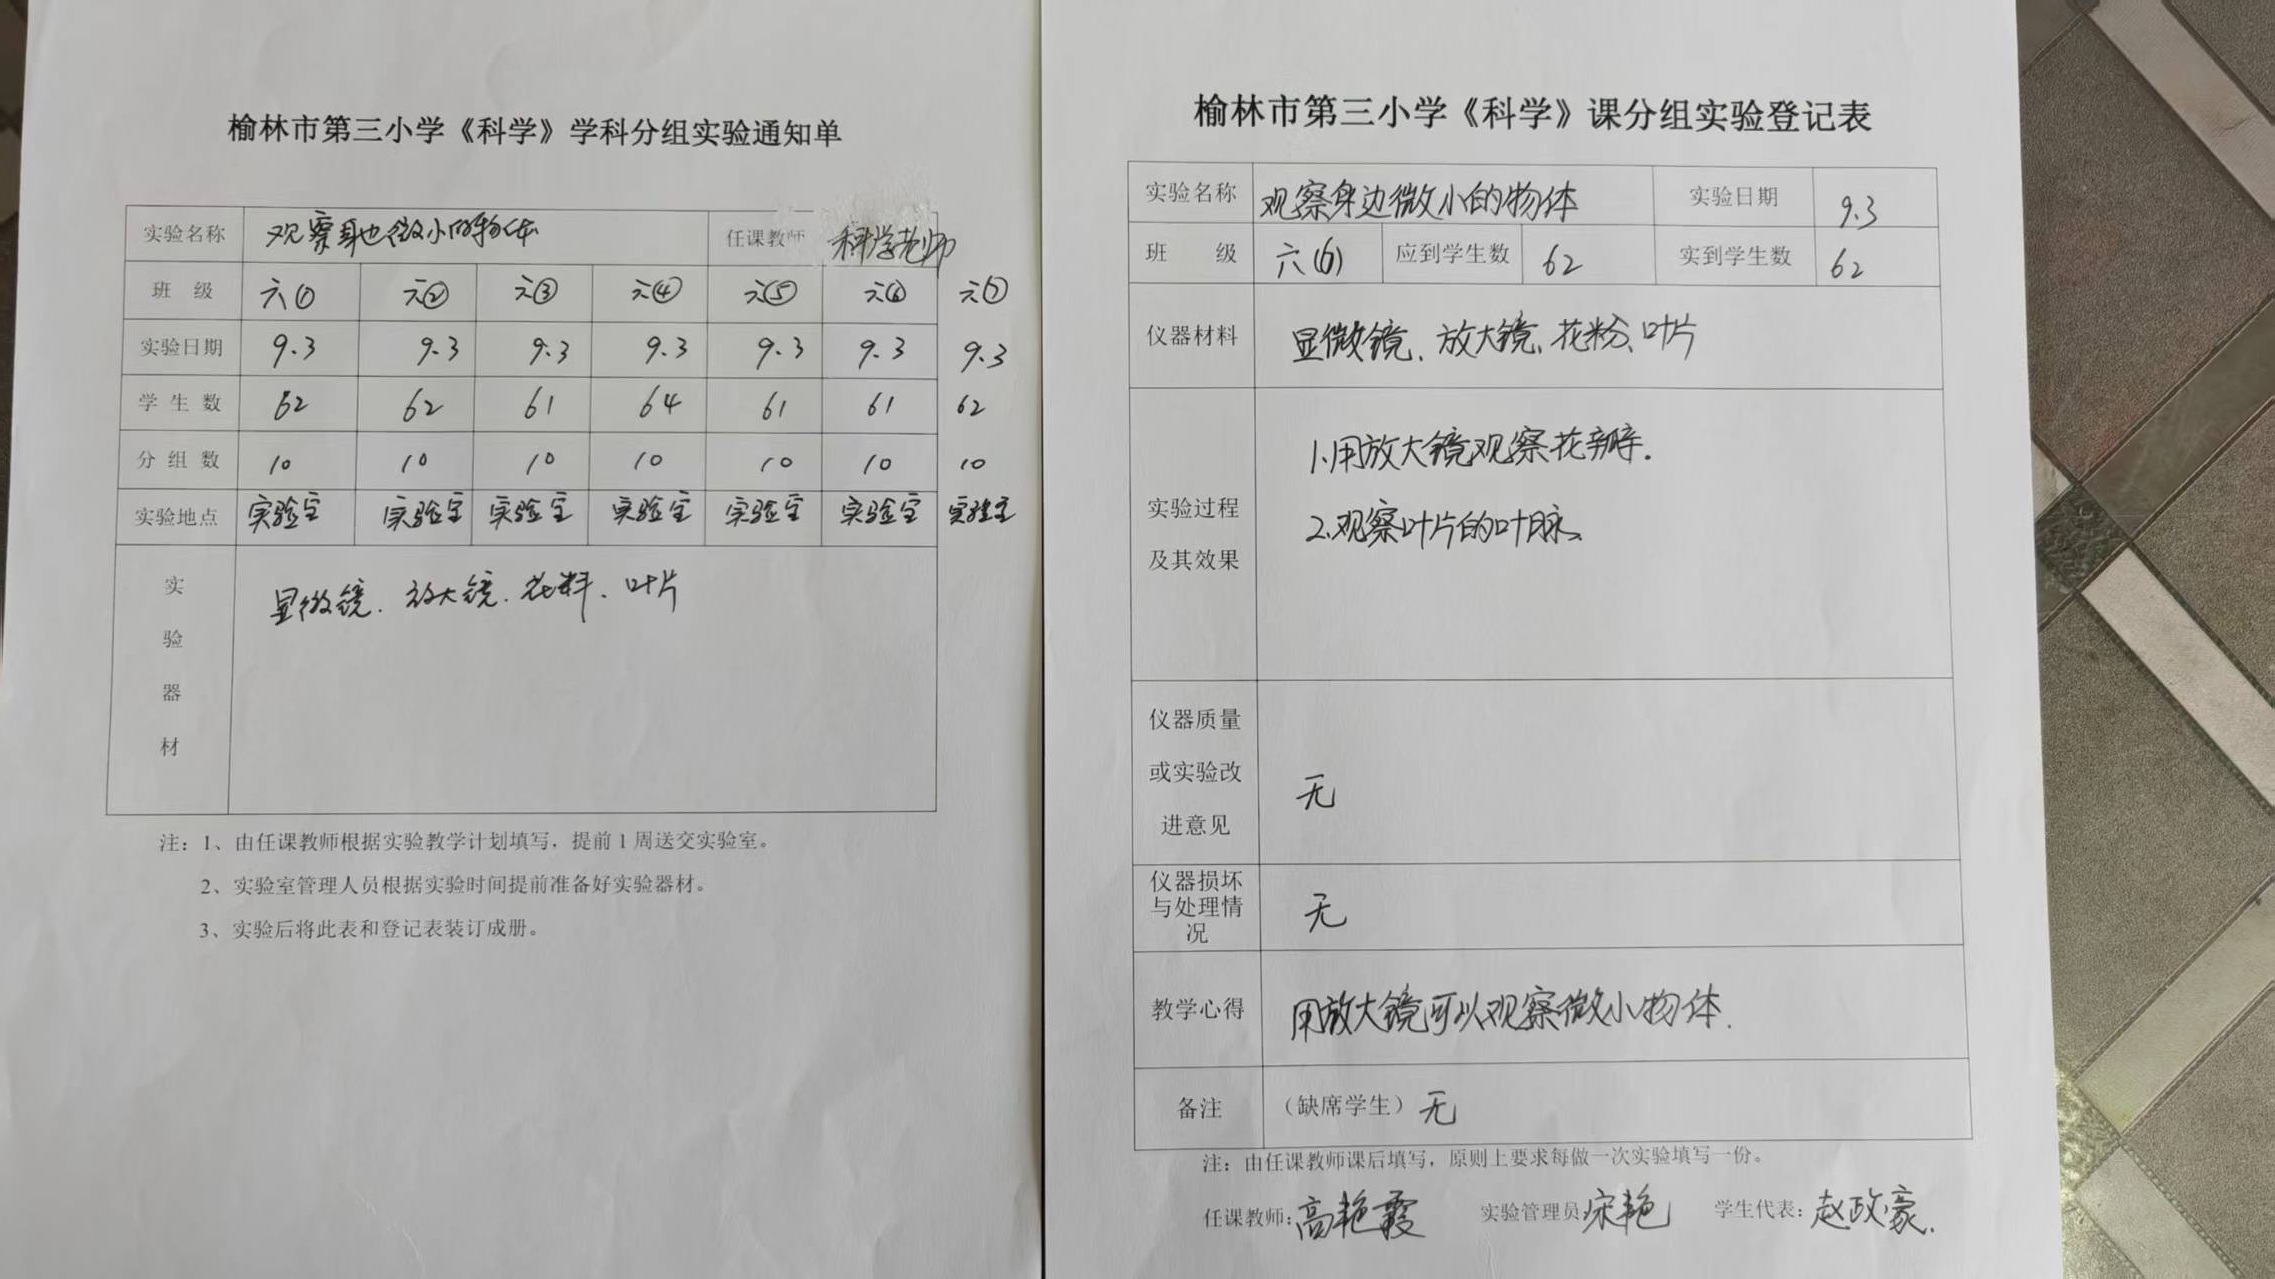 榆林市第三小学《科学》学科分组实验通知单
实验名称 观察身边微小的物体 任课教师 科学老师
班 级 六① 六② 六③ 六④ 六⑤ 六⑥ 六⑦
实验日期 9.3 9.3 9.3 9.3 9.3 9.3 9.3
学 生 数 62 62 61 64 61 61 62
分 组 数 10 10 10 10 10 10 10
实验地点 实验室 实验室 实验室 实验室 实验室 实验室 实验室
实
验
器
材
显微镜、放大镜、花粉、叶片
注：1、由任课教师根据实验教学计划填写，提前1周送交实验室。
2、实验室管理人员根据实验时间提前准备好实验器材。
3、实验后将此表和登记表装订成册。
榆林市第三小学《科学》课分组实验登记表
实验名称 观察身边微小的物体 实验日期 9.3
班 级 六(6) 应到学生数 62 实到学生数 62
仪器材料 显微镜、放大镜、花粉、叶片
实验过程
及其效果
1.用放大镜观察花瓣.
2.观察叶片的叶脉、
仪器质量
或实验改
进意见
无
仪器损坏
与处理情
况
无
教学心得 用放大镜可以观察微小物体.
备注 （缺席学生）无
注：由任课教师课后填写，原则上要求每做一次实验填写一份。
任课教师：高艳霞 实验管理员 宋艳 学生代表：赵政豪.